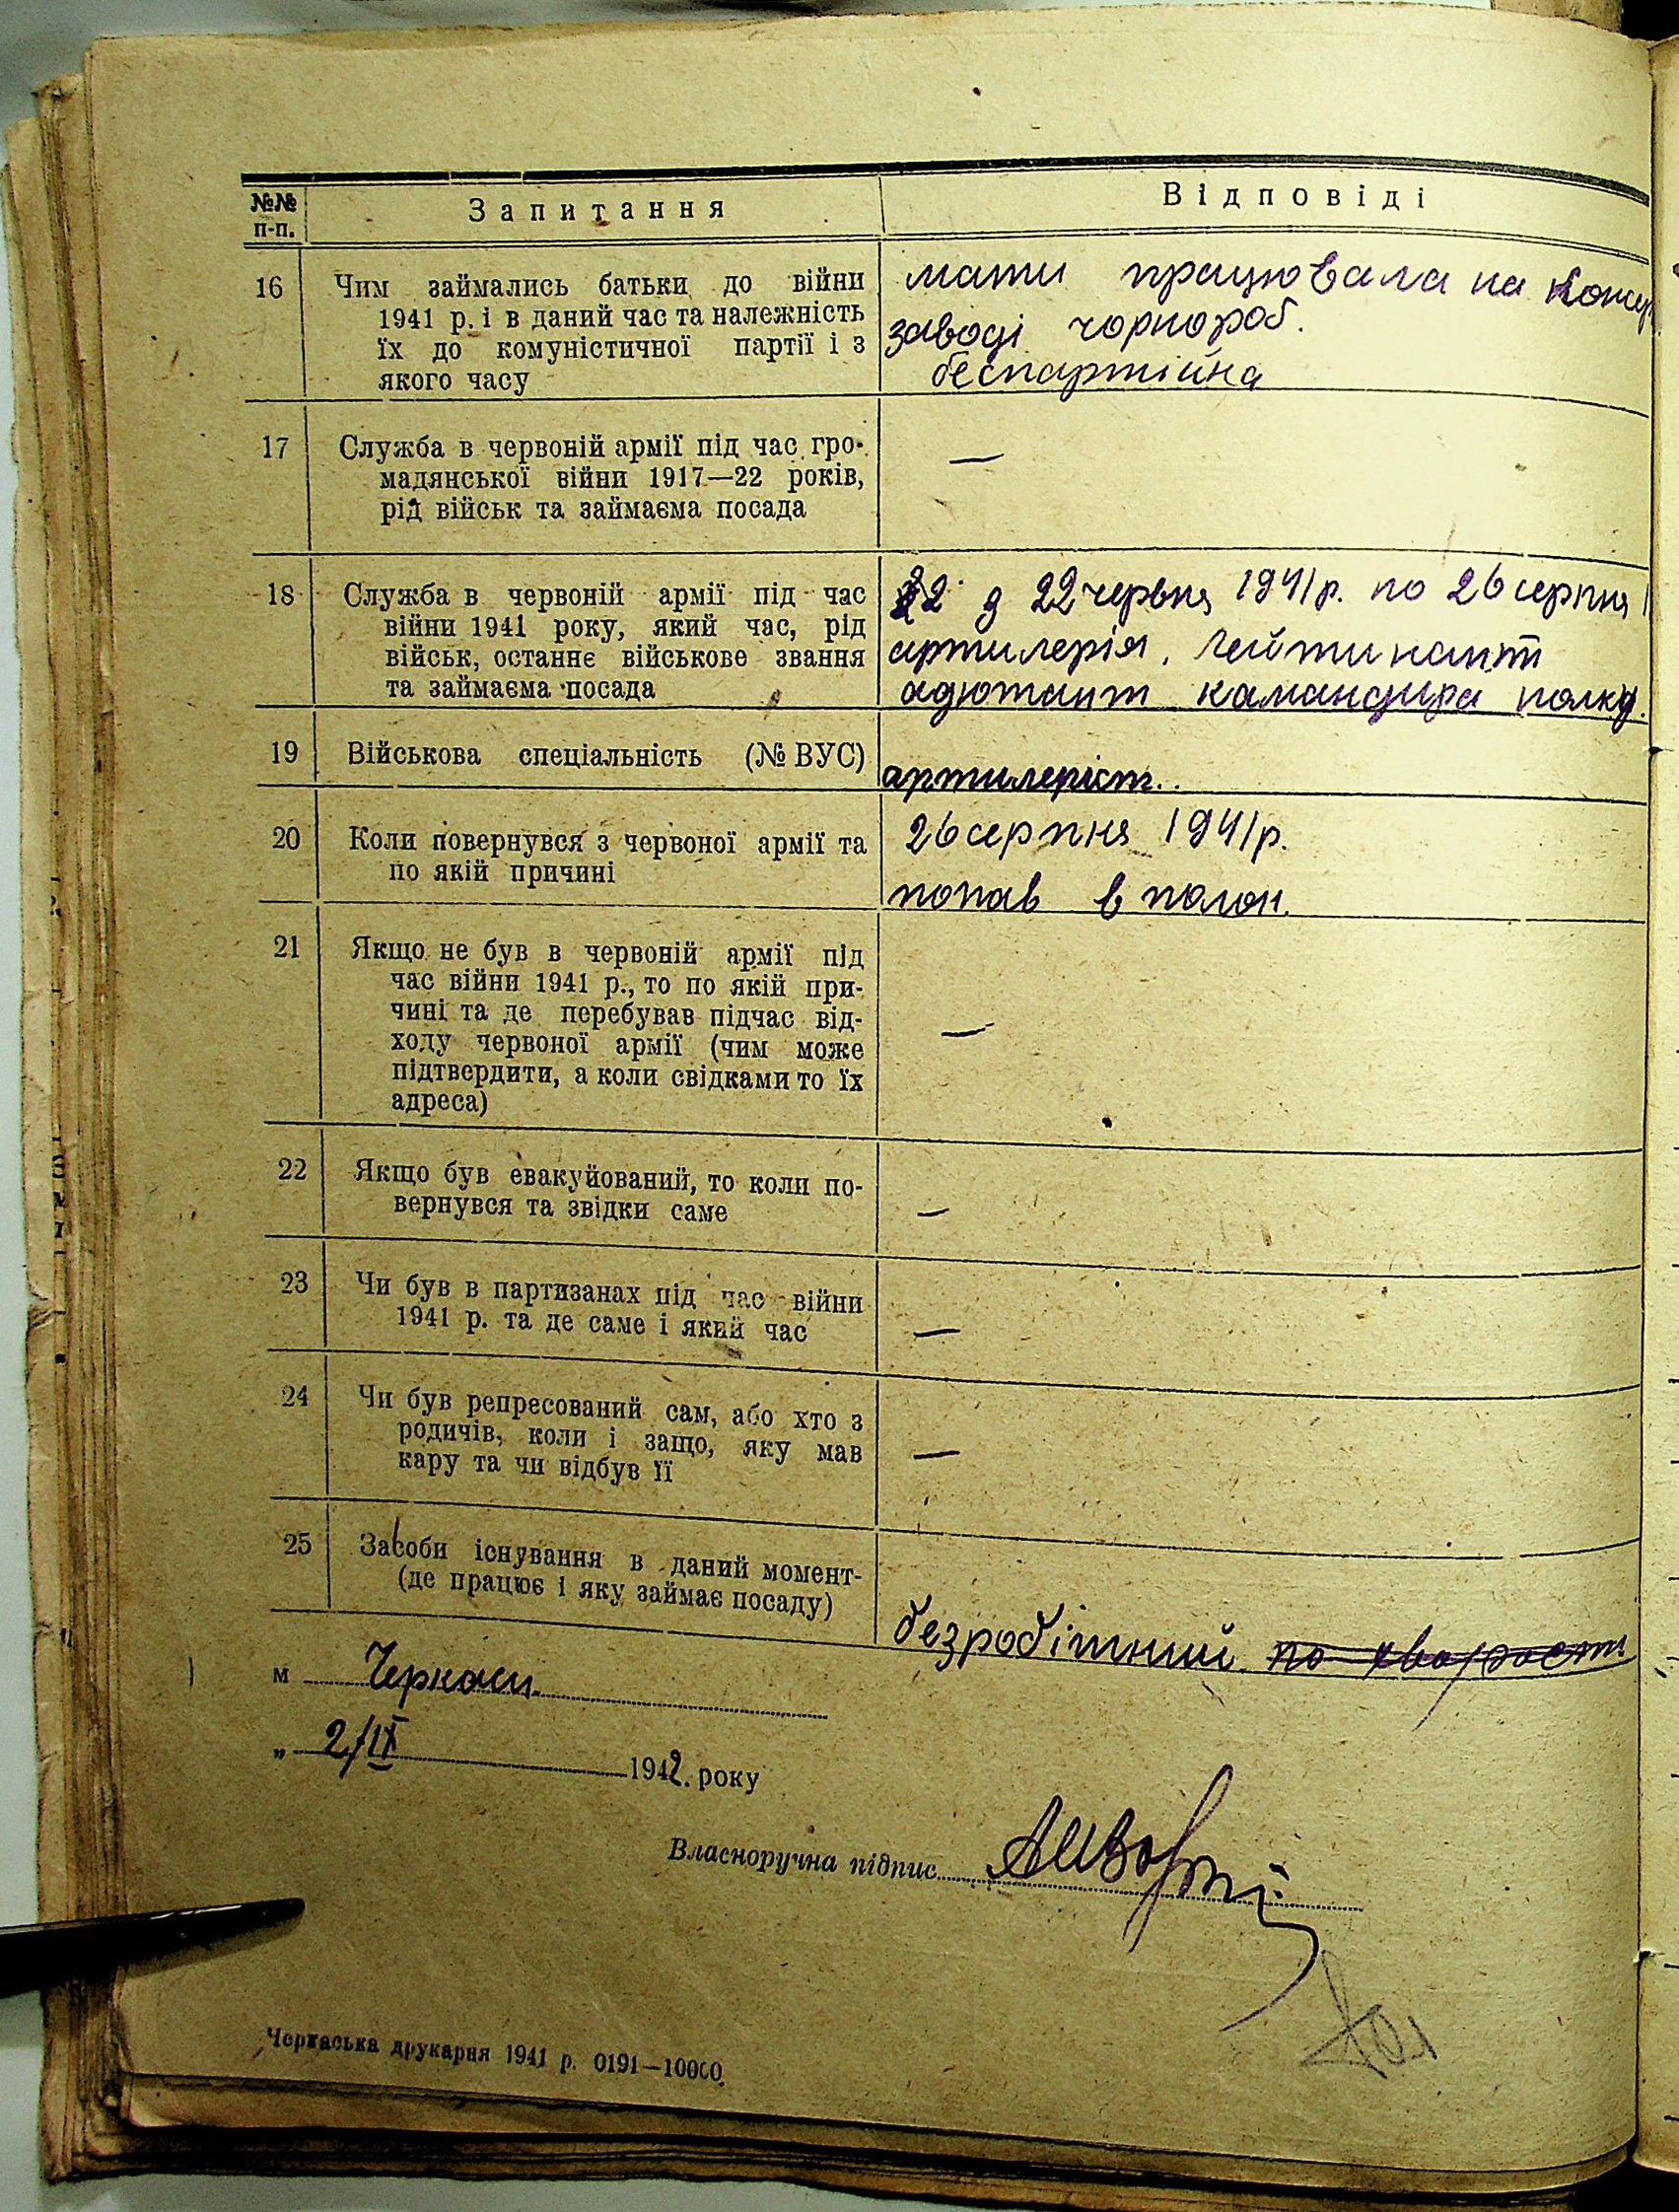 №№ п-п.
Запитання
Відповіді
16
Чим займались батьки до війни
1941 р. і в даний час та належність
їх до комуністичної партії і з
якого часу
мати працювала на
заводі чорнороб.
беспартійна
17
Служба в червоній армії під час гро-
мадянської війни 1917—22 років,
рід військ та займаєма посада
—
18
Служба в червоній армії під час
війни 1941 року, який час, рід
військ, останнє військове звання
та займаєма посада
22 червня 1941 р. по 26 серпня
артилерія. лейтинант
адютант командира полку.
19
Військова спеціальність (№ ВУС)
артилеріст.
20
Коли повернувся з червоної армії та
по якій причині
26 серпня 1941 р.
попав в полон.
21
Якщо не був в червоній армії під
час війни 1941 р., то по якій при-
чині та де перебував підчас від-
ходу червоної армії (чим може
підтвердити, а коли свідками то їх
адреса)
—
22
Якщо був евакуйований, то коли по-
вернувся та звідки саме
—
23
Чи був в партизанах під час війни
1941 р. та де саме і який час
—
24
Чи був репресований сам, або хто з
родичів, коли і защо, яку мав
кару та чи відбув її
—
25
Засоби існування в даний момент-
(де працює і яку займає посаду)
безробітний по
м Черкаси.
„ 2/IX 1942. року
Власноручна підпис
Черкаська друкарня 1941 р. 0191—10000.